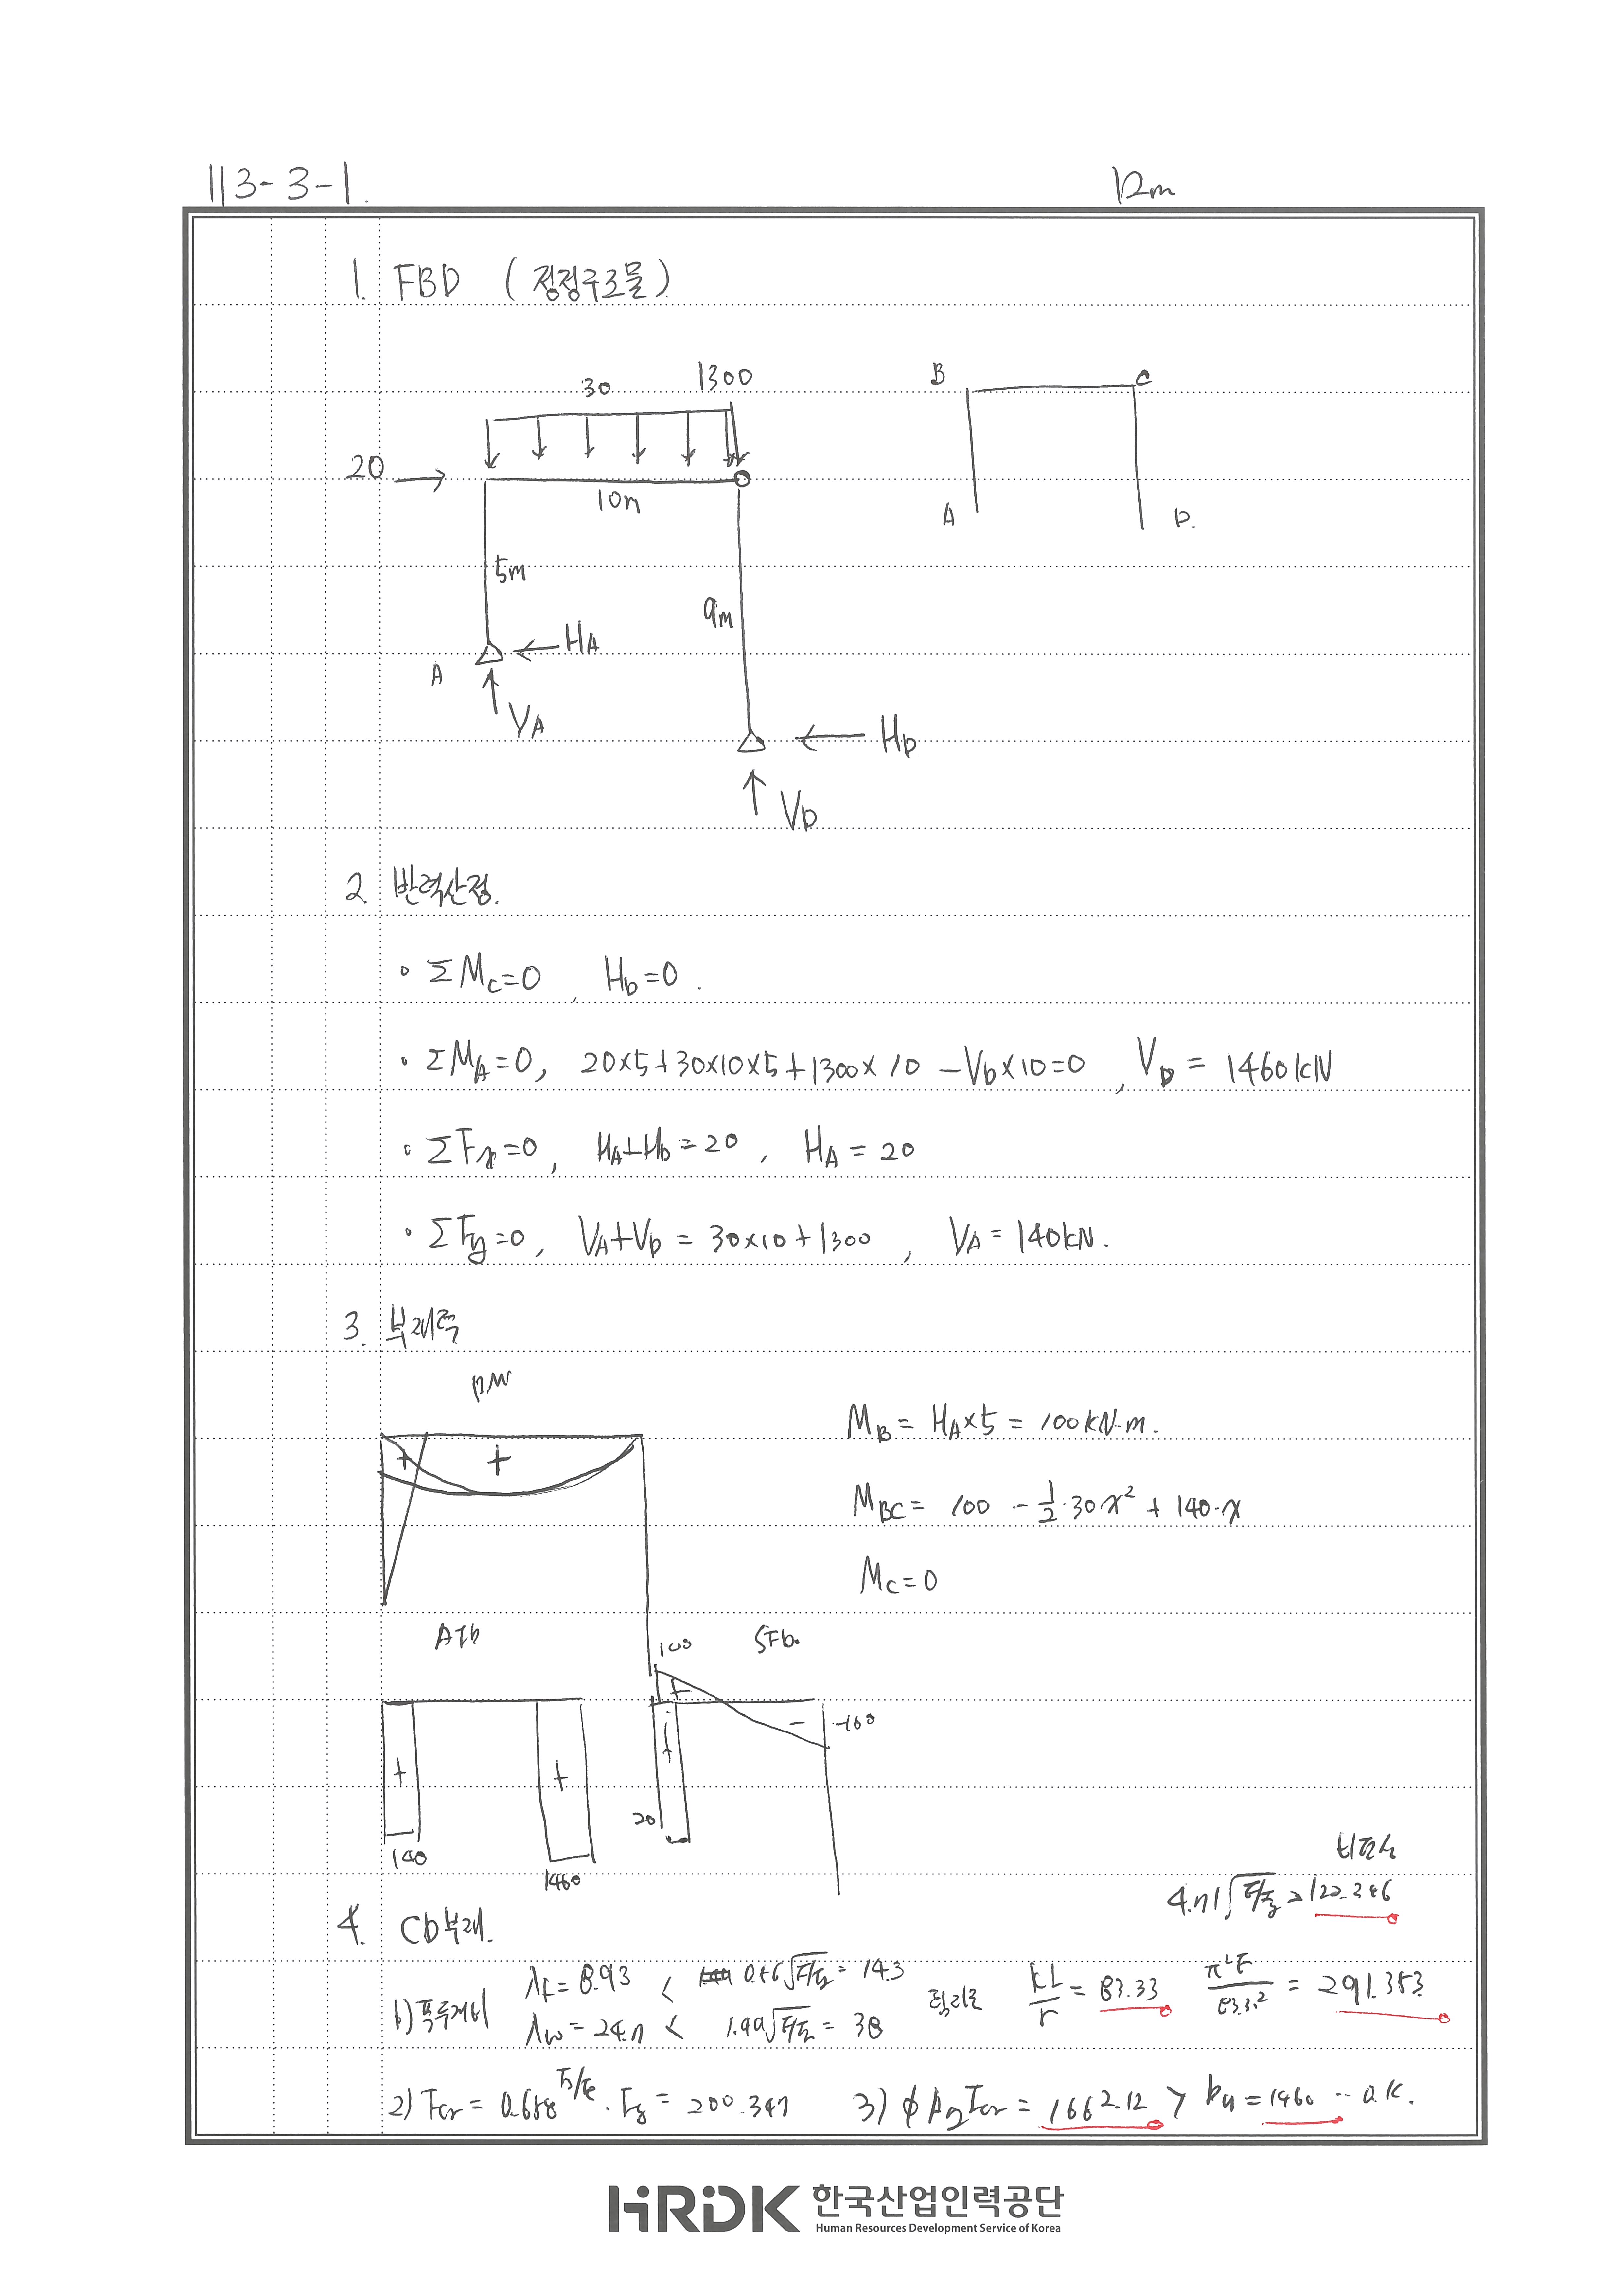 113-3-1.
1. FBD (정정구조물)
30
1300
20
10m
5m
9m
A
HA
VA
HD
VD
B
C
A
D.
2. 반력산정.
• ΣMc=0, HD=0.
• ΣMA=0, 20×5+30×10×5+1300×10-VD×10=0, VD = 1460kN
• ΣFx=0, HA+HD=20, HA=20
• ΣFy=0, VA+VD = 30×10+1300, VA=140kN.
3. 부재력
MB = HA×5 = 100kN·m.
MBC = 100 - 1/2·30x² + 140·x
Mc=0
AFD
SFD.
+
+
+
+
140
1460
20
-160
4. CD부재.
비탄성
4.71√E/Fy > 122.246
1) 폭두께비
λf = 8.93 < 0.56√E/Fy = 14.3
λw = 24.7 < 1.49√E/Fy = 38
kL/r = 83.33
π²E/83.3² = 291.353
2) Fcr = 0.658^Fy/Fe · Fy = 200.347
3) φAgFcr = 1662.12 > Pu = 1460 -- O.K.
HRDK 한국산업인력공단
Human Resources Development Service of Korea